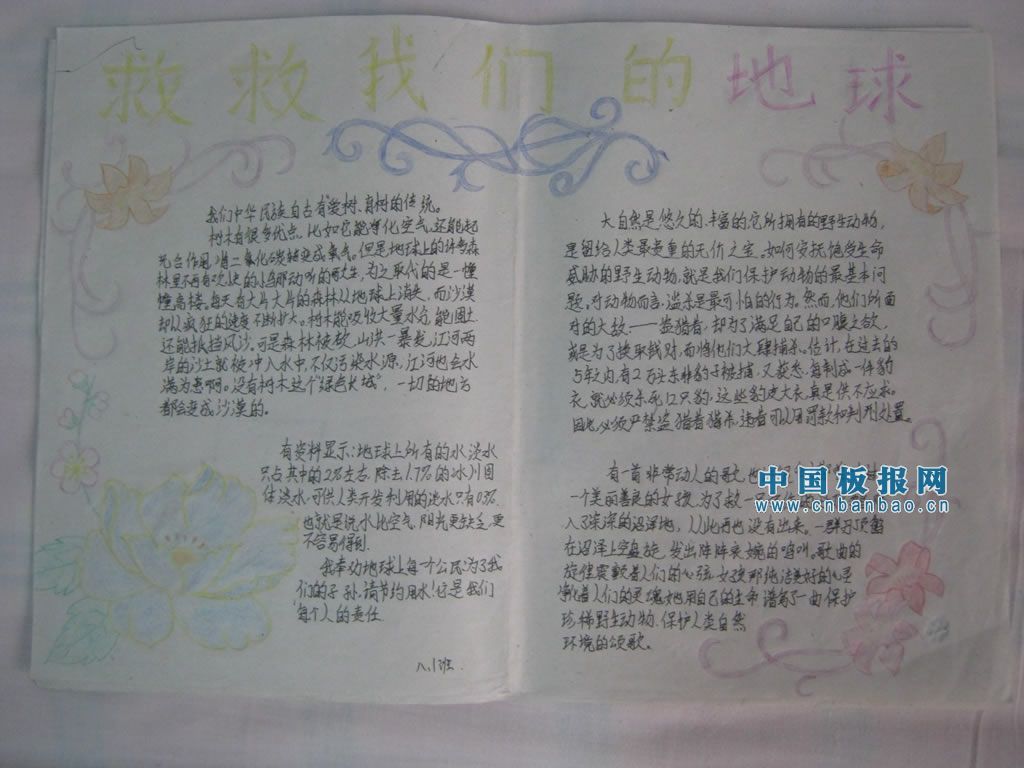 救救我们的地球
我们中华民族自古有爱树、育树的传统。
树木有很多优点。比如它能净化空气,还能起
光合作用,增二氧化碳转变成氧气。但是地球上的许多森
林里不再有欢快的小鸟那动听的,为之取代的是一幢
幢高楼。每天有大片大片的森林从地球上消失,而沙漠
却以疯狂的速度不断扩大。树木能吸收大量水分,能固土
还能抵挡风沙。可是森林被砍,山洪一暴发,江河两
岸的沙土就被冲入水中,不仅污染水源,江河也会水
满为患啊。没有树木这个"绿色长城",一切的地方
都会变成沙漠的。
有资料显示:地球上所有的水,淡水
只占其中的2%左右,除去1.7%的冰川固
体淡水,可供人类开发利用的淡水只有0.3%
也就是说水比空气,阳光更缺乏,更
不容易得到.
我奉劝地球上每个公民:为了我
们的子孙,请节约用水!这是我们
每个人的责任
八.1班.
大自然是悠久的、丰富的,它所拥有的野生动物,
是留给人类最贵重的无价之宝。如何安抚饱受生命
威胁的野生动物,就是我们保护动物的最基本问
题,对动物而言,滥杀是最可怕的行为。然而,他们所面
对的大敌——盗猎者,却为了满足自己的口腹之欲,
或是为了换取钱财,而将他们大肆捕杀。估计,在过去的
5年之内,有2万头非洲豹子被捕,又获悉,每制成一件豹
衣,就必须杀死口只豹,这些豹皮大衣,真是供不应求。
因此,必须严禁盗猎者猎杀,违者可以日罚款和判刑处置。
有一首非常动人的歌,也
一个美丽善良的女孩,为了救一只
入了深深的沼泽地,从此再也没有出来。一群丹顶鹤
在沼泽上空盘旋,发出阵阵哀婉的鸣叫。歌曲的
旋律震颤着人们的心弦,女孩那纯洁美好的心灵
净化着人们的灵魂,她用自己的生命谱写了一曲保护
珍稀野生动物、保护人类自然
环境的颂歌。
中国板报网
www.cnbanbao.cn